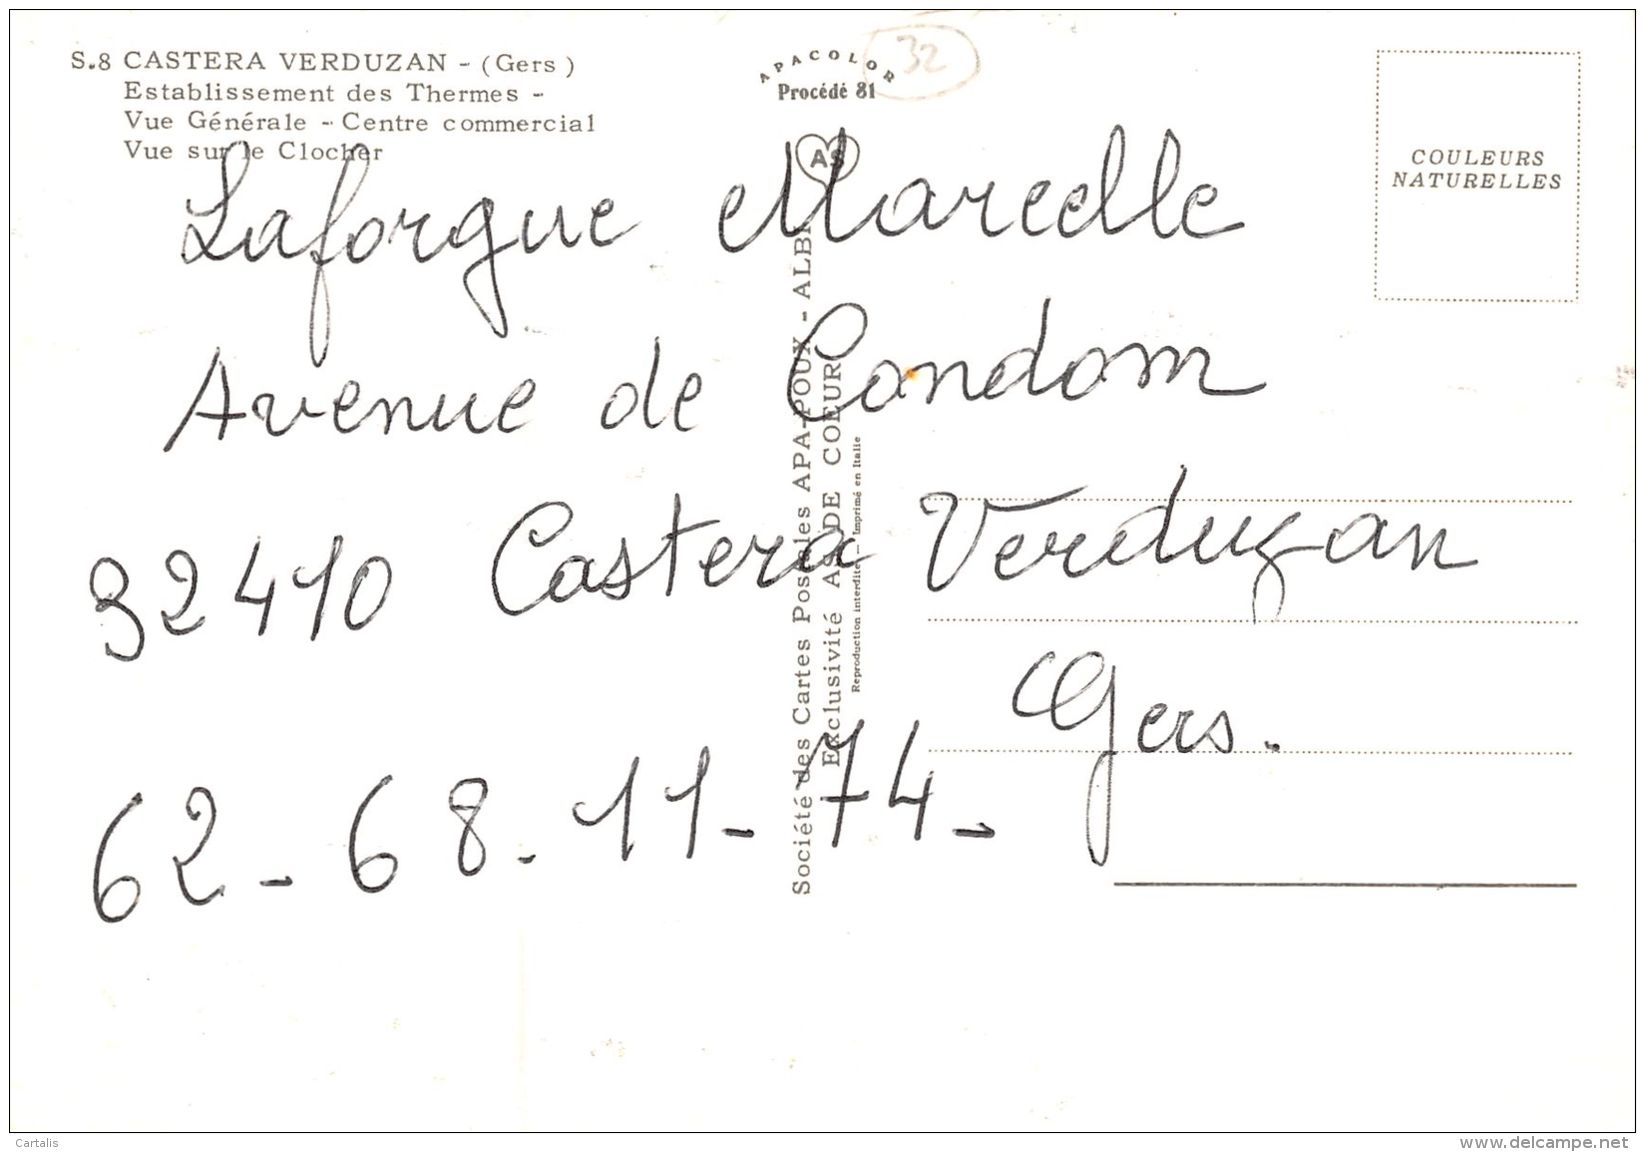 S.8 CASTERA VERDUZAN - (Gers)
Etablissement des Thermes -
Vue Générale - Centre commercial
Vue sur le Clocher
APACOLOR
Procédé 81
32
AS
COULEURS
NATURELLES
Laforgue Marcelle
Avenue de Condom
32410 Castera Verduzan
Gers.
62-68.11-74-
Société des Cartes Postales APA-POUX - ALBI
Exclusivité AS DE COEUR
Reproduction interdite - Imprimé en Italie
Cartalis
www.delcampe.net